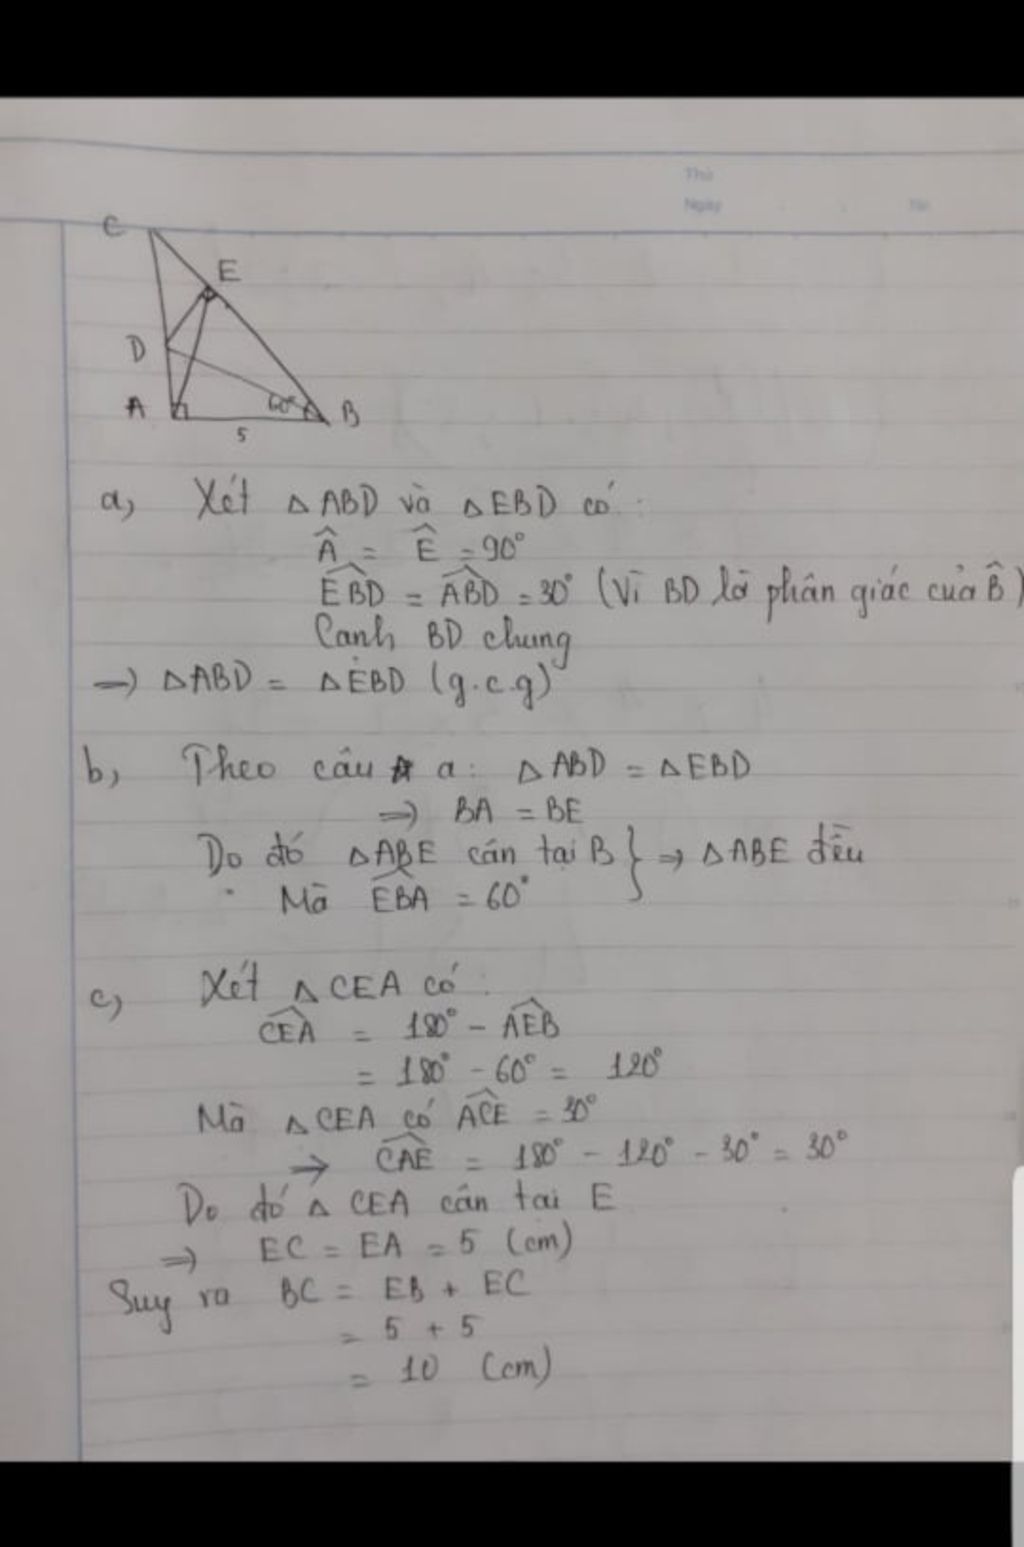 Thứ
Ngày
C
E
D
A
60°
B
5
a, Xét △ABD và △EBD có:
Â = Ê = 90°
EBD = ABD = 30° (Vì BD là phân giác của B̂)
Cạnh BD chung
⇒ △ABD = △EBD (g.c.g)
b, Theo câu a: △ABD = △EBD
⇒ BA = BE
Do đó △ABE cân tại B } ⇒ △ABE đều
Mà EBA = 60°
c, Xét △CEA có:
CEA = 180° - AEB
= 180° - 60° = 120°
Mà △CEA có ACE = 30°
⇒ CAE = 180° - 120° - 30° = 30°
Do đó △ CEA cân tai E
⇒ EC = EA = 5 (cm)
Suy ra BC = EB + EC
= 5 + 5
= 10 (cm)